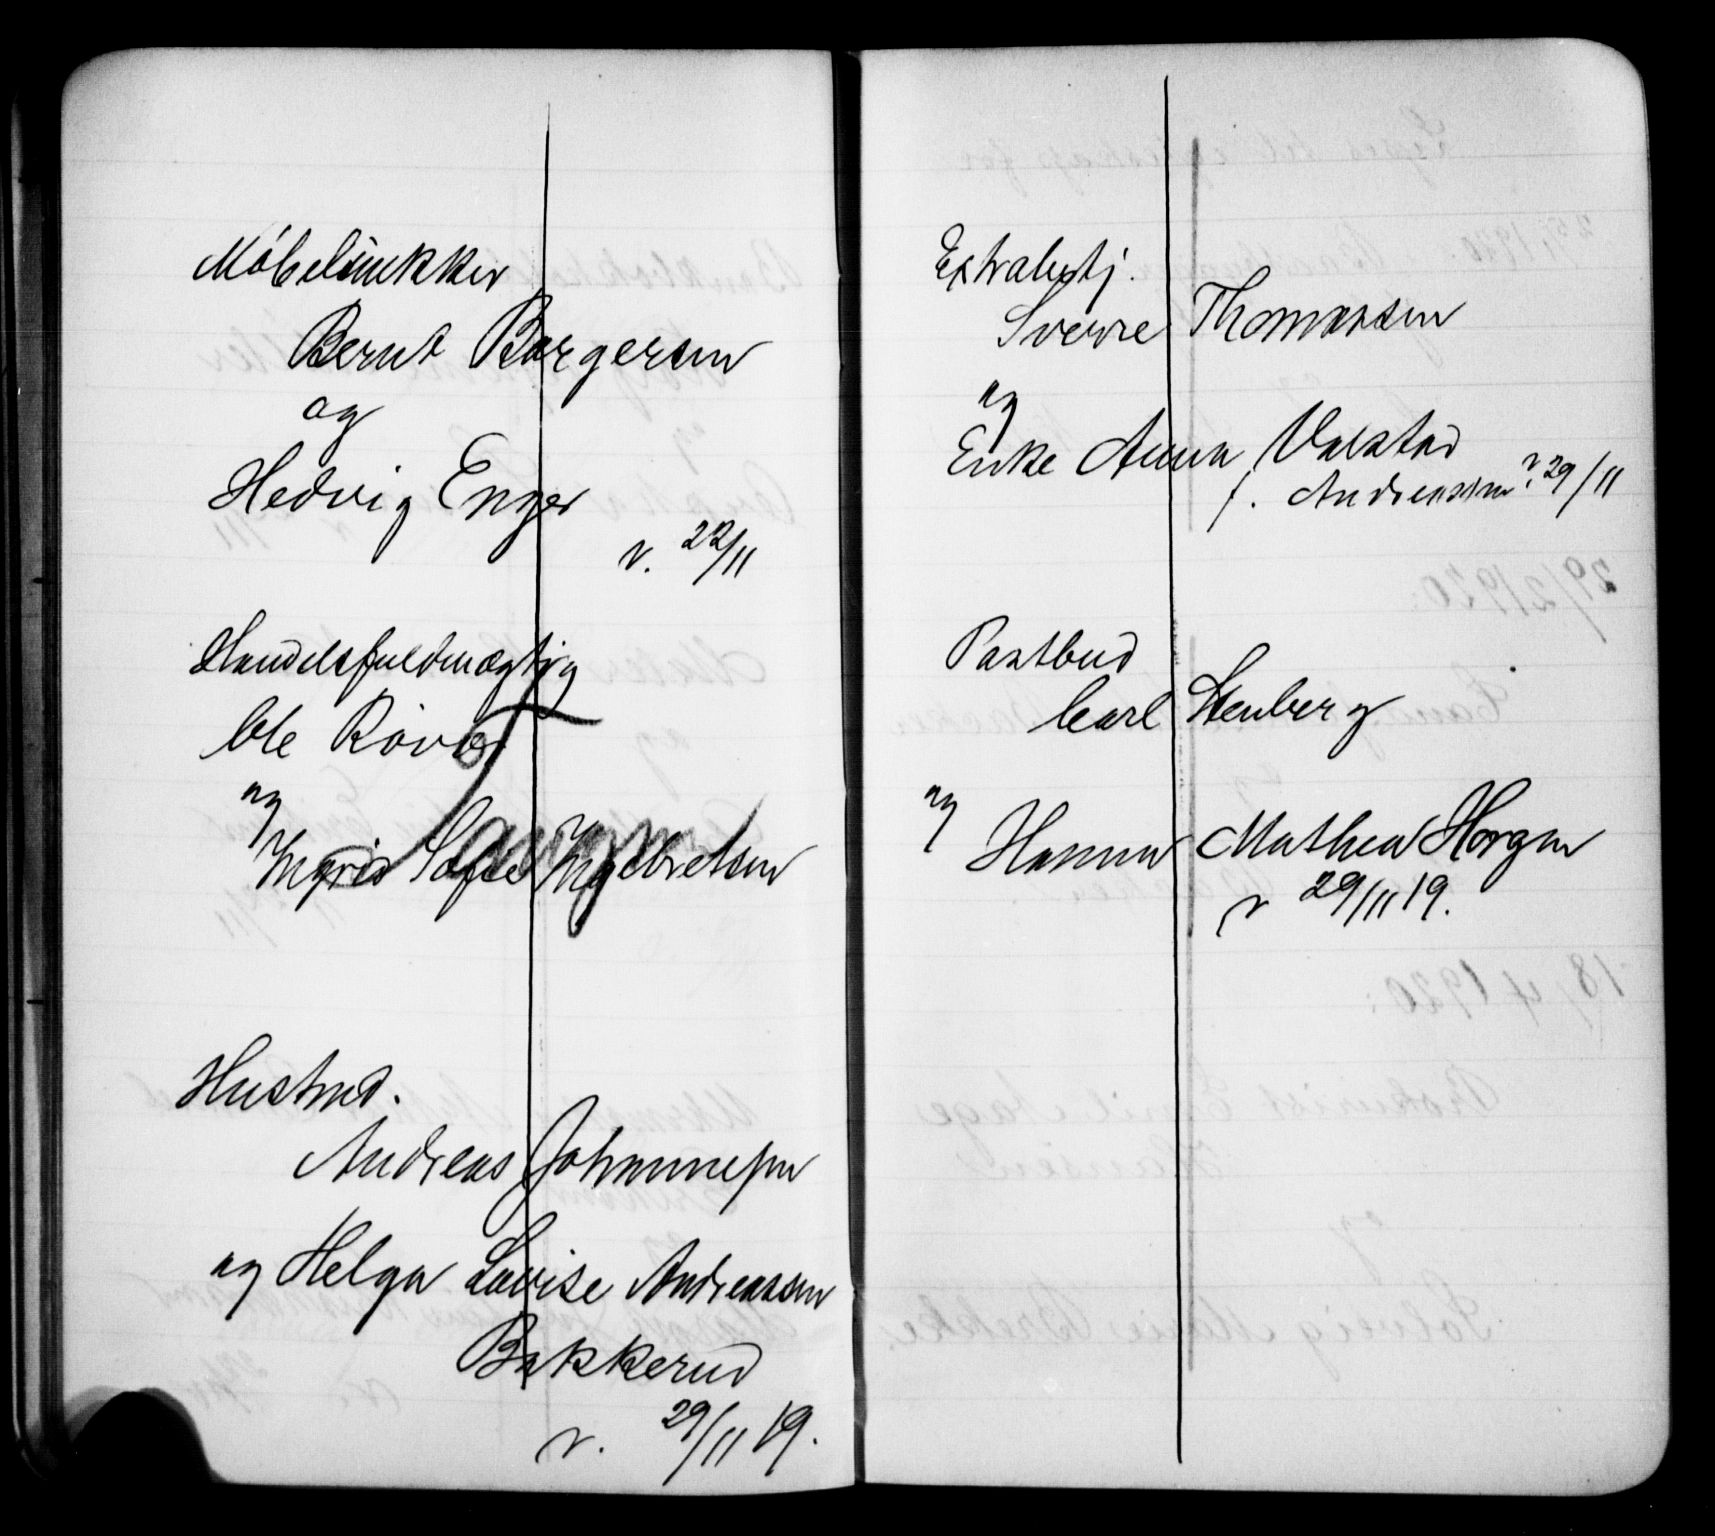 Møbelsnekker
Bernt Borgersen
og
Hedvig Enger
v. 22/11
Handelsfuldmægtig
Ole
og
Ingrid Sofie Ingebretsen
Hustmd.
Andreas Johannesen
og Helga Lovise Andreassen
Bakkerud
v. 29/11 19.
Extrabetj.
Sverre Thomassen
og
Enke Anna Valstad
f. Andreassen v. 29/11
Postbud
Carl Stenberg
og
Hanna Mathea Horgen
v 29/11 19.